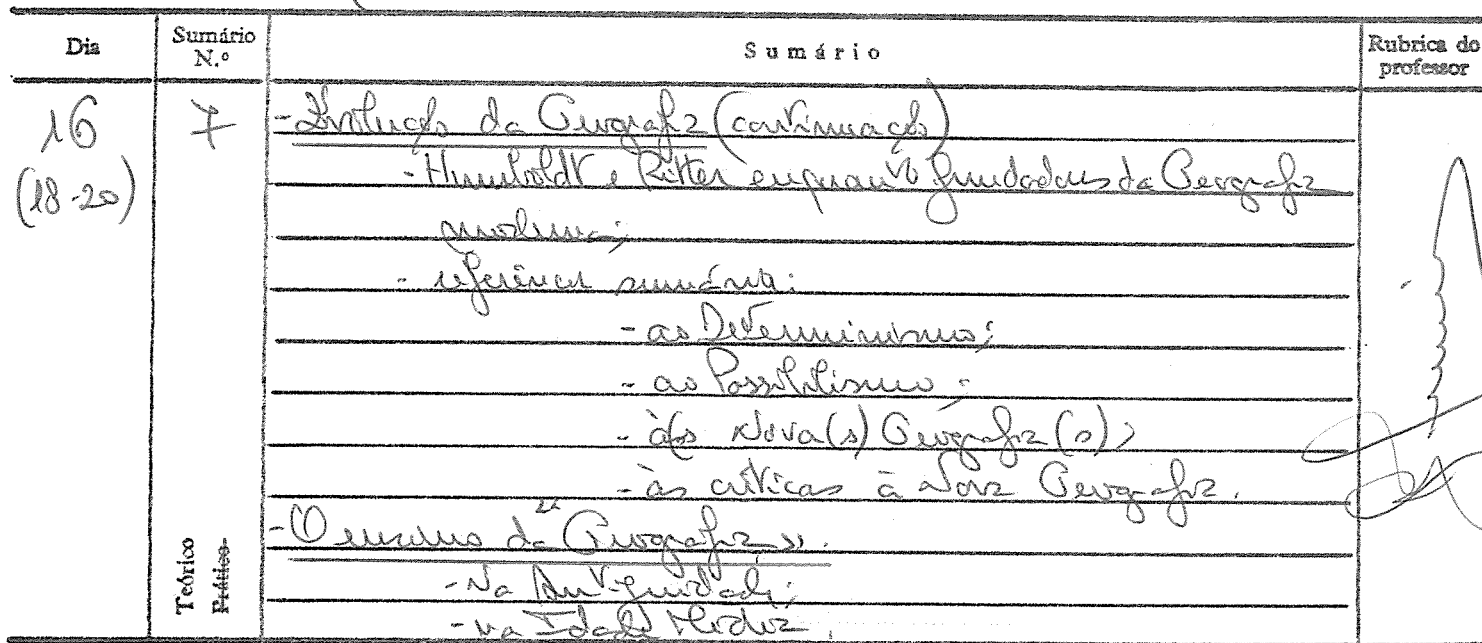 Dia
Sumário N.º
Sumário
Rubrica do professor
16
(18-20)
7
- Evolução da Geografia (continuação)
- Humboldt e Ritter enquanto fundadores da Geografia
moderna;
- referência sumária:
- ao Determinismo;
- ao Possibilismo;
- à(s) Nova(s) Geografia(s);
- às críticas à Nova Geografia.
- O ensino da "Geografia".
- Na Antiguidade;
- na Idade Média.
Teórico
Prático